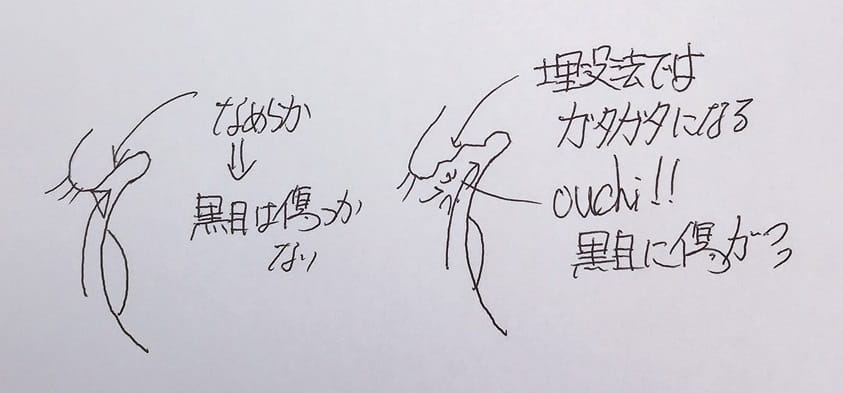 なめらか
⇓
黒目は傷つか
ない
埋没法では
ガタガタになる
ouchi!!
黒目に傷がつく